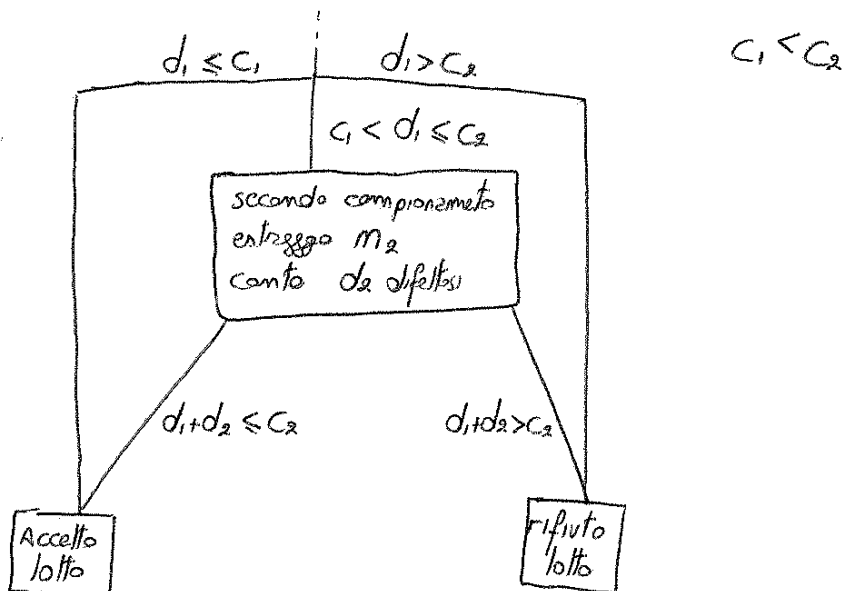 d₁ ≤ c₁
d₁ > c₂
c₁ < c₂
c₁ < d₁ ≤ c₂
secondo campionameto
estraggo m₂
conto d₂ difettosi
d₁+d₂ ≤ c₂
d₁+d₂ > c₂
Accetto
lotto
rifiuto
lotto